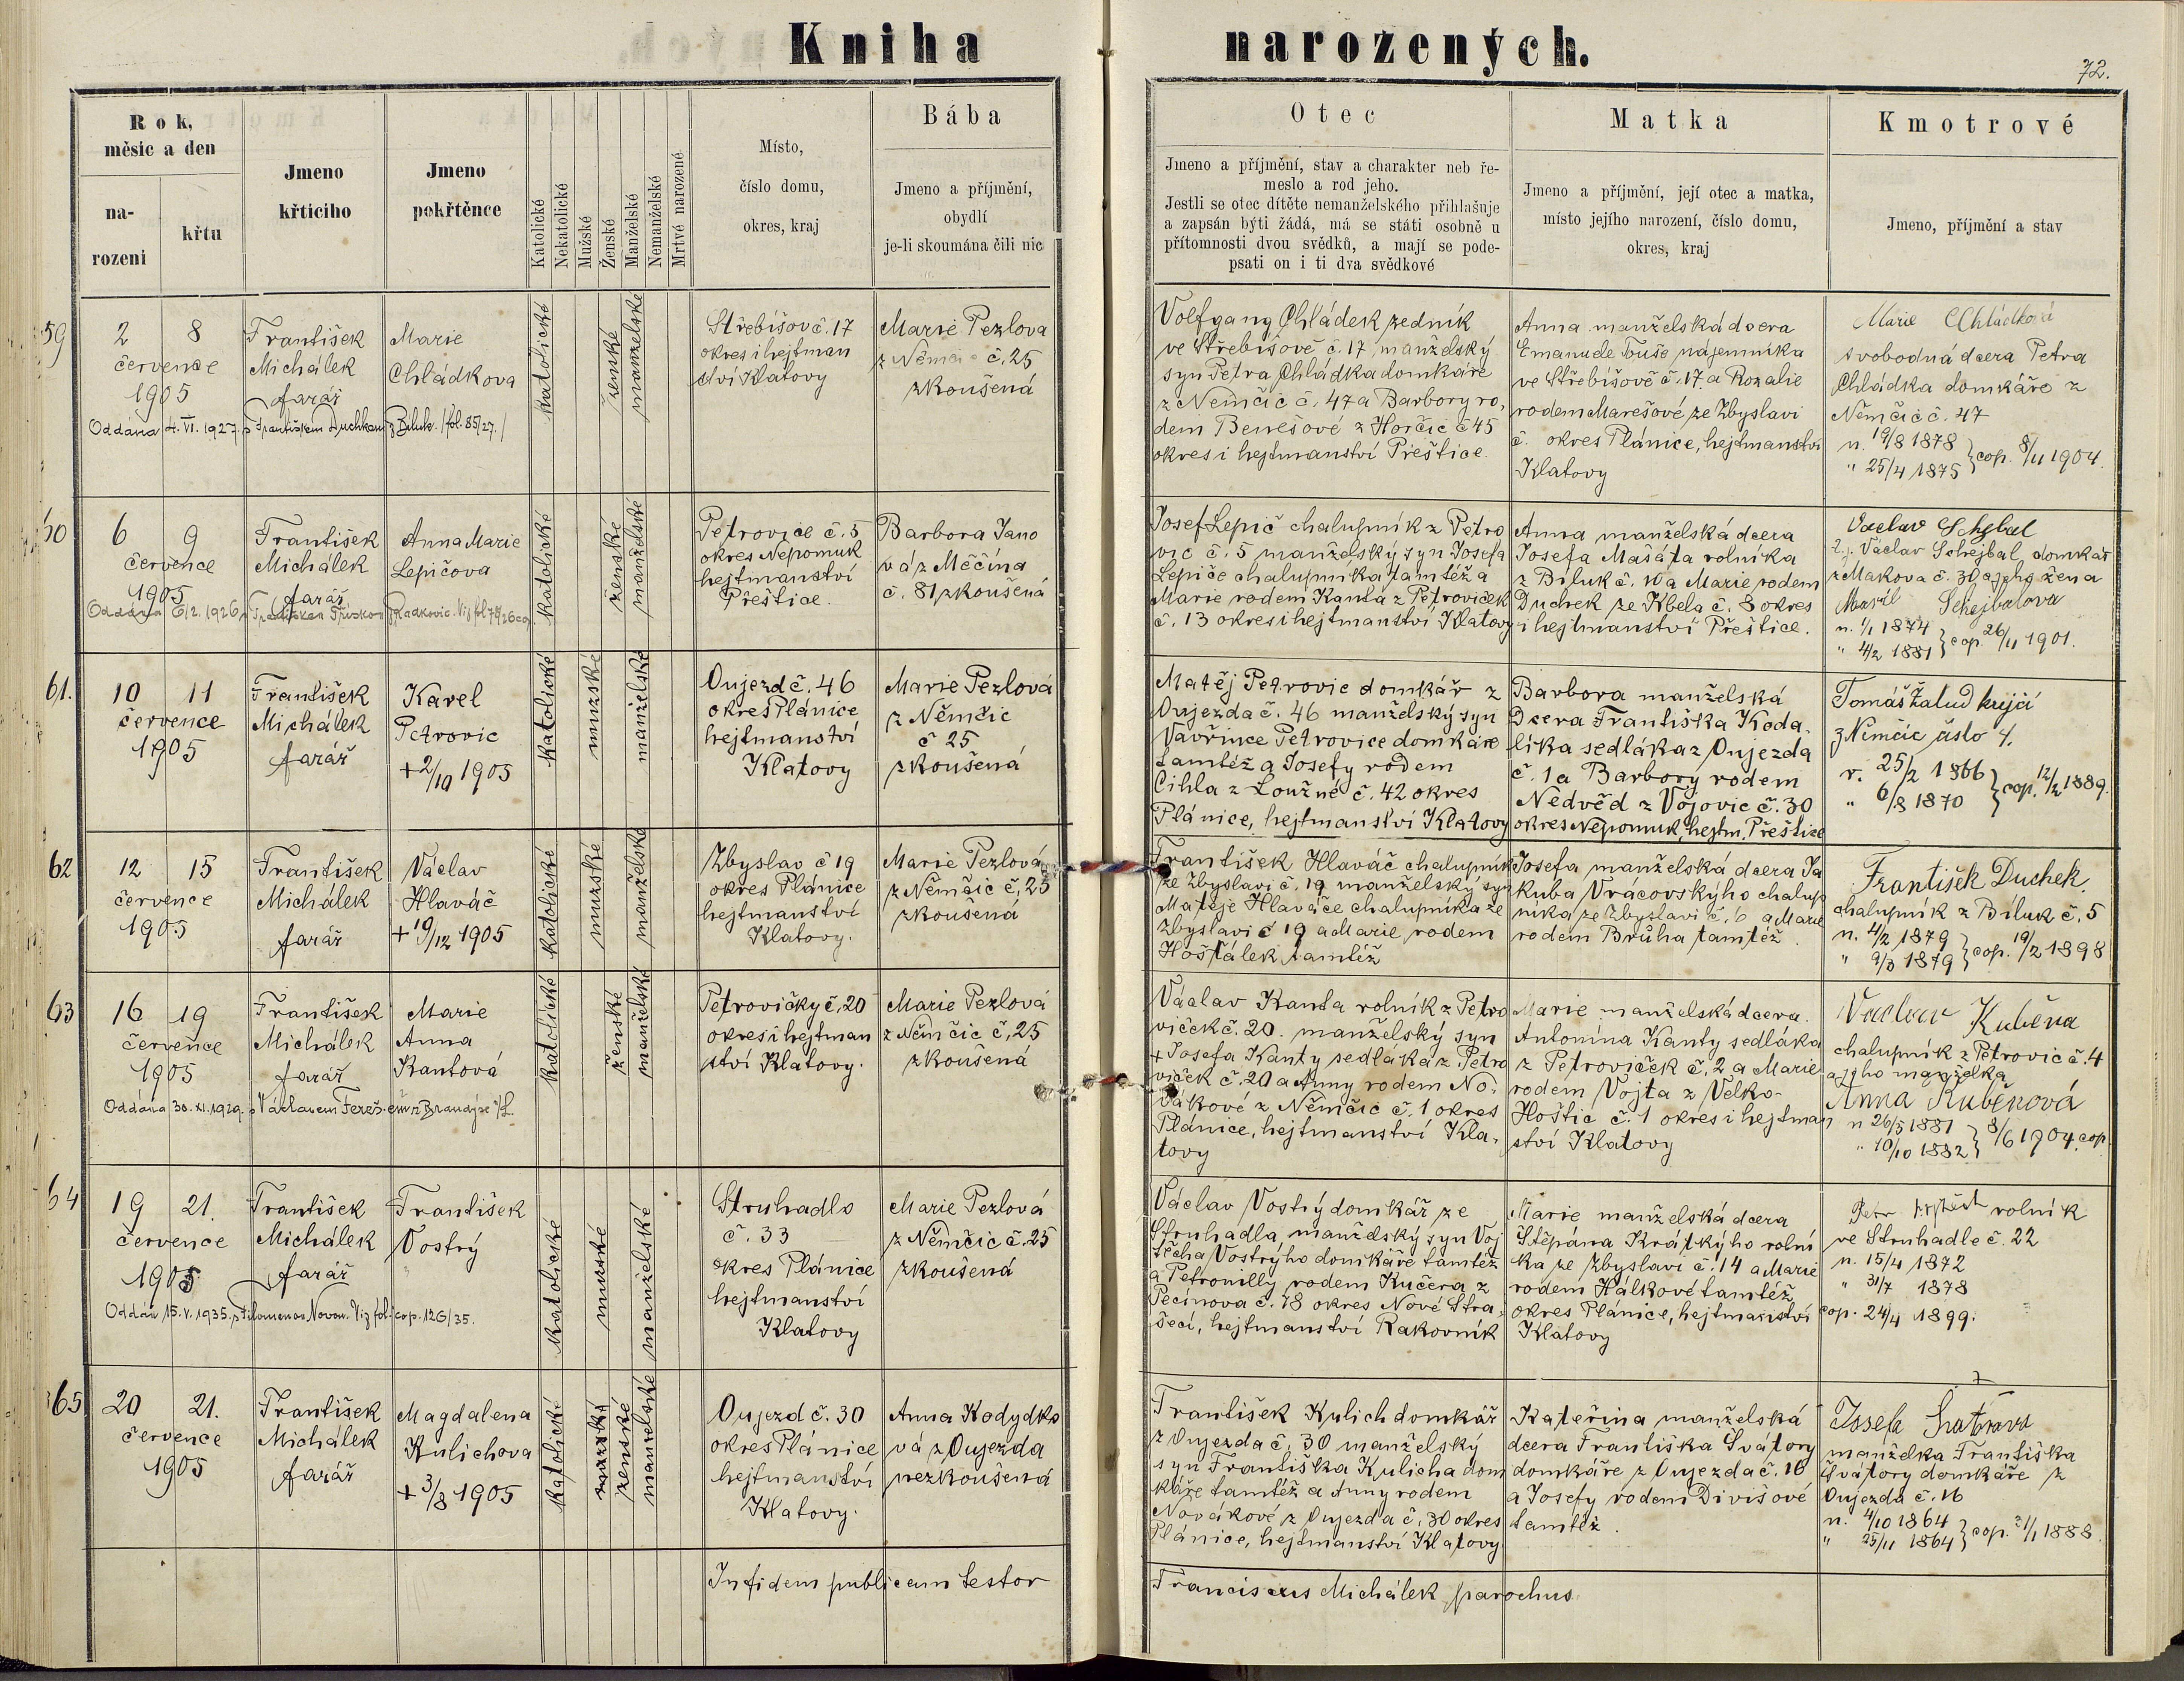 Kniha narozených.
72.
Rok, měsic a den
na-
rozeni
křtu
Jmeno
křticiho
Jmeno
pokřtěnce
Katolické
Nekatolické
Mužské
Ženské
Manželské
Nemanželské
Mrtvé narozené
Místo,
číslo domu,
okres, kraj
Bába
Jmeno a příjmění,
obydlí
je-li skoumána čili nic
Otec
Jmeno a příjmění, stav a charakter neb ře-
meslo a rod jeho.
Jestli se otec dítěte nemanželského přihlašuje
a zapsán býti žádá, má se státi osobně u
přítomnosti dvou svědků, a mají se pode-
psati on i ti dva svědkové
Matka
Jmeno a příjmění, její otec a matka,
místo jejího narození, číslo domu,
okres, kraj
Kmotrové
Jmeno, příjmění a stav
59
2 8
července
1905
František
Michálek
farář
Marie
Chládkova
Oddána 4. VI. 1927. s Františkem Duchkem z Biluk. /fol. 85/27./
katolické
ženské
manželské
Střebíšov č. 17
okres i hejtman
ství Klatovy
Marie Pezlova
z Němčic č. 25
zkoušená
Volfgang Chládek zedník
ve Střebišově č. 17, manželský
syn Petra Chládka domkáře
z Němčic č. 47 a Barbory ro,
dem Benešové z Horčic č 45
okres i hejtmanství Přeštice.
Anna manželská dcera
Emanuele Touše nájemníka
ve Střebišově č. 17. a Rozalie
rodem Marešové ze Zbyslavi
č. okres Plánice, hejtmanství
Klatovy
Marie Chládková
svobodná dcera Petra
Chládka domkáře z
Němčic č. 47
n. 19/8 1878
" 25/4 1875 } cop. 8/11 1904.
60
6 9
července
1905
František
Michálek
farář
Anna Marie
Lepičova
Oddána 6/2. 1926
katolické
ženské
manželské
Petrovice č. 5
okres Nepomuk
hejtmanství
Přeštice.
Barbora Jano
vá z Měčína
č. 81 zkoušená
Josef Lepič chalupník z Petro
vic č. 5 manželský syn Josefa
Lepiče chalupníka tamtéž a
Marie rodem Kanta z Petroviček
č. 13 okres i hejtmanství Klatovy
Anna manželská dcera
Josefa Mašáta rolníka
z Biluk č. 10 a Marie rodem
Duchek ze Kbela č. 8 okres
i hejtmanství Přeštice.
Vaclav Schejbal
t. j. Václav Schejbal domkář
z Makova č. 30 a jeho žena
Marie Schejbalova
n. 1/1 1874
" 4/2 1881 } cop. 26/11 1901.
61.
10 11
července
1905
František
Michálek
farář
Karel
Petrovic
+ 2/10 1905
katolické
mužské
manželské
Oujezd č. 46
okres Plánice
hejtmanství
Klatovy
Marie Pezlová
z Němčic
č 25
zkoušená
Matěj Petrovic domkář z
Oujezda č. 46 manželský syn
Vavřince Petrovice domkáře
tamtéž a Josefy rodem
Cihla z Loužné č. 42 okres
Plánice, hejtmanství Klatovy
Barbora manželská
Dcera Františka Koda,
lika sedláka z Oujezda
č. 1 a Barbory rodem
Nedvěd z Vojovic č. 30
okres Nepomuk, hejtm. Přeštice
Tomáš Žalud krejčí
z Němčic číslo 4.
r. 25/2 1866
" 6/8 1870 } cop. 12/2 1889.
62
12 15
července
1905
František
Michálek
farář
Václav
Hlaváč
+ 19/12 1905
katolické
mužské
manželské
Zbyslav č 19
okres Plánice
hejtmanství
Klatovy.
Marie Pezlová
z Němčic č. 25
zkoušená
František Hlaváč chalupník
ze Zbyslavi č. 19 manželský syn
Matěje Hlaváče chalupníka ze
Zbyslavi č 19 a Marie rodem
Hošťálek tamtéž
Josefa manželská dcera Ja
kuba Vrácovskýho chalup
níka ze Zbyslavi č. 6 a Marie
rodem Brůha tamtéž.
František Duchek.
chalupník z Biluk č. 5
n. 4/2 1879
" 9/3 1879 } cop. 19/2 1898
63
16 19
července
1905
František
Michálek
farář
Marie
Anna
Kantová
Oddána 30. XI. 1929. s Václavem Fereš-em z Brandýse n/L.
katolické
ženské
manželské
Petrovičky č. 20
okres i hejtman
ství Klatovy.
Marie Pezlová
z Němčic č. 25
zkoušená
Václav Kanta rolník z Petro
viček č. 20. manželský syn
+ Josefa Kanty sedláka z Petro
viček č. 20 a Anny rodem No-
vákové z Němčic č. 1 okres
Plánice, hejtmanství Kla,
tovy
Marie manželská dcera.
Antonína Kanty sedláka
z Petroviček č. 2 a Marie
rodem Vojta z Velko-
Hoštic č. 1 okres i hejtman
ství Klatovy
Vaclav Kuběna
chalupník z Petrovic č. 4
a jeho manželka
Anna Kuběnová
n 26/5 1881
" 10/10 1882 } 8/6 1904. cop.
64
19 21.
července
1905
František
Michálek
farář
František
Vostrý
Oddán 15. V. 1935. s Filomenou Novou. Viz fol. cop. 126/35.
katolické
mužské
manželské
Struhadlo
č. 33
okres Plánice
hejtmanství
Klatovy
Marie Pezlová
z Němčic č. 25
zkoušená
Václav Vostrý domkář ze
Struhadla, manželský syn Voj
těcha Vostrýho domkáře tamtéž
a Petronilly rodem Kučera z
Pecínova č. 78 okres Nové Stra,
šecí, hejtmanství Rakovník
Marie manželská dcera
Štěpána Krátkýho rolní
ka ze Zbyslavi č. 14 a Marie
rodem Hálkové tamtéž
okres Plánice, hejtmanství
Klatovy
Petr rolník
ve Struhadle č. 22
n. 15/4 1872
" 31/7 1878
cop. 24/4 1899.
65
20 21.
července
1905
František
Michálek
farář
Magdalena
Kulichova
+ 3/8 1905
katolické
mužské
ženské
manželské
Oujezd č. 30
okres Plánice
hejtmanství
Klatovy.
Anna Kodydko
vá z Oujezda
nezkoušená
František Kulich domkář
z Oujezda č. 30 manželský
syn Františka Kulicha dom
káře tamtéž a Anny rodem
Novákové z Oujezda č. 30 okres
Plánice, hejtmanství Klatovy
Kateřina manželská
dcera Františka Švátory
domkáře z Oujezda č. 16
a Josefy rodem Divišové
tamtéž.
Josefa
manželka Františka
Švátory domkáře z
Oujezda č. 16
n. 4/10 1864
" 25/11 1864 } cop. 21/1 1888
In fidem publicam testor
Franciscus Michálek parochus